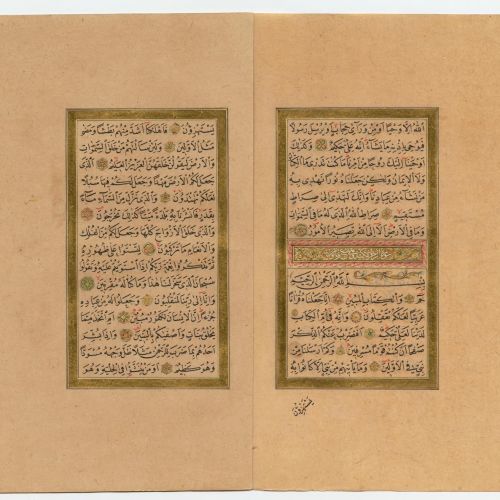 الله إلا وحيا أو من وراء حجاب أو يرسل رسولا
فيوحي بإذنه ما يشاء إنه علي حكيم وكذلك
أوحينا إليك روحا من أمرنا ما كنت تدري ما الكتاب
ولا الإيمان ولكن جعلناه نورا نهدي به
من نشاء من عبادنا وإنك لتهدي إلى صراط
مستقيم صراط الله الذي له ما في السموات
وما في الأرض ألا إلى الله تصير الأمور
بسم الله الرحمن الرحيم
حم والكتاب المبين إنا جعلناه قرآنا
عربيا لعلكم تعقلون وإنه في أم الكتاب
لدينا لعلي حكيم أفنضرب عنكم الذكر
صفحا أن كنتم قوما مسرفين وكم أرسلنا من
نبي في الأولين وما يأتيهم من نبي إلا كانوا به
يستهزؤن
يستهزؤن فأهلكنا أشد منهم بطشا ومضى
مثل الأولين ولئن سألتهم من خلق السموات
والأرض ليقولن خلقهن العزيز العليم الذي
جعل لكم الأرض مهدا وجعل لكم فيها سبلا
لعلكم تهتدون والذي نزل من السماء ماء
بقدر فأنشرنا به بلدة ميتا كذلك تخرجون
والذي خلق الأزواج كلها وجعل لكم من الفلك
والأنعام ما تركبون لتستووا على ظهوره
ثم تذكروا نعمة ربكم إذا استويتم عليه وتقولوا
سبحان الذي سخر لنا هذا وما كنا له مقرنين
وإنا إلى ربنا لمنقلبون وجعلوا له من عباده
جزءا إن الإنسان لكفور مبين أم اتخذ مما
يخلق بنات وأصفاكم بالبنين وإذا بشر
أحدهم بما ضرب للرحمن مثلا ظل وجهه مسودا
وهو كظيم أو من ينشأ في الحلية وهو